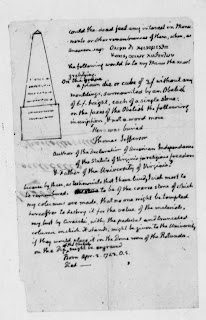 could the dead feel any interest in Monu-
ments or other remembrances of them, when, as
Anacreon says
the following would be to my Manes the most
gratifying.
On the grave
a plain die or cube of 3.f without any
mouldings, surmounted by an Obelisk
of 6.f height, each of a single stone:
on the faces of the Obelisk the following
inscription, & not a word more
Here was buried
Thomas Jefferson
Author of the Declaration of American Independance
of the Statute of Virginia for religious freedom
& Father of the University of Virginia.
because by these, as testimonials that I have lived, I wish most to
be remembered. to be of the coarse stone of which
my columns are made, that no one might be tempted
hereafter to destroy it for the value of the materials.
my bust by Ciracchi, with the pedestal and truncated
column on which it stands, might be given to the University
if they would place it in the Dome room of the Rotunda.
on the Die might be engraved
Born Apr. 2. 1743. O.S.
Died